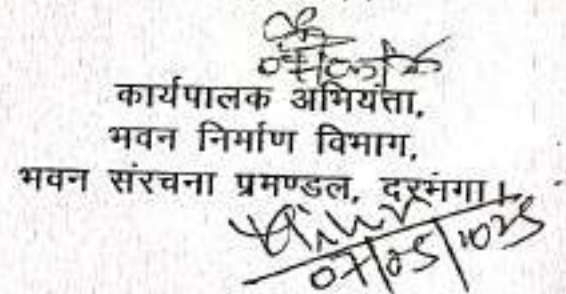 कार्यपालक अभियंता,
भवन निर्माण विभाग,
भवन संरचना प्रमण्डल, दरभंगा।
07/05/2025